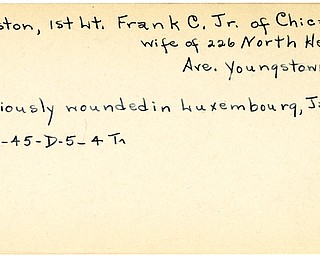 ston, 1st Lt. Frank C. Jr. of Chic
wife of 226 North He
Ave. Youngstow
iously wounded in Luxembourg, J
-45-D-5-4 Tr